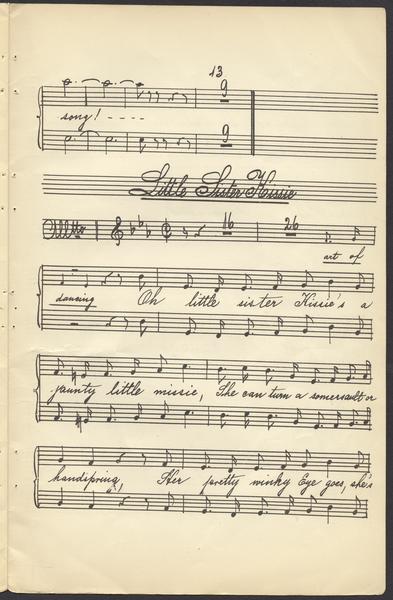 13
9
song! - - - -
9
Little Sister Kissie
Alltto 16 26
art of
dancing Oh little sister Kissie's a
jaunty little missie, She can turn a somersault or
handspring, Her pretty winky Eye goes, she's